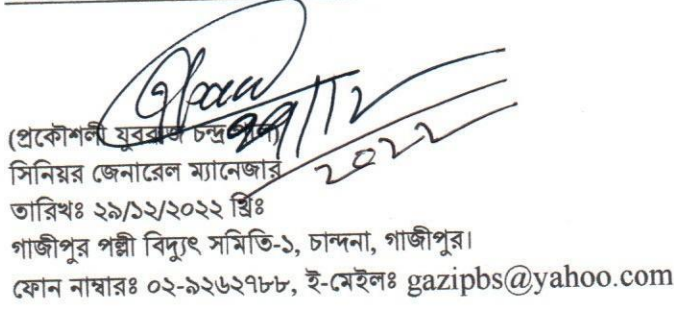 29/12
2022
(প্রকৌশলী যুবরাজ চন্দ্র
সিনিয়র জেনারেল ম্যানেজার
তারিখঃ ২৯/১২/২০২২ খ্রিঃ
গাজীপুর পল্লী বিদ্যুৎ সমিতি-১, চান্দনা, গাজীপুর।
ফোন নাম্বারঃ ০২-৯২৬২৭৮৮, ই-মেইলঃ gazipbs@yahoo.com